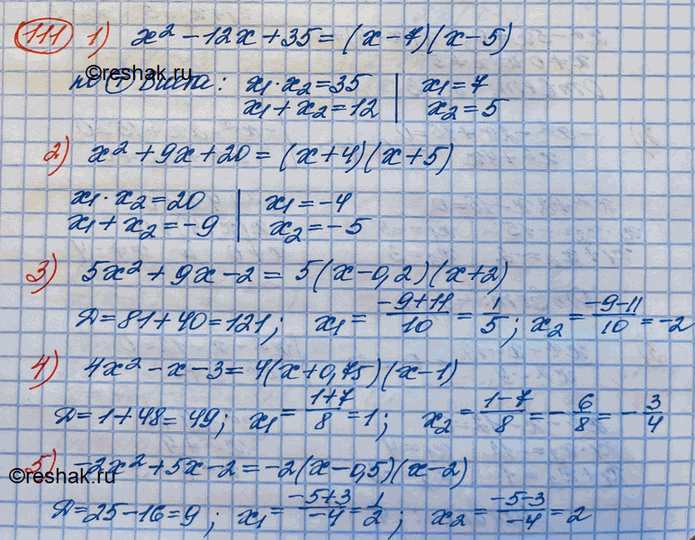 111 1) x² - 12x + 35 = (x - 7)(x - 5)
©reshak.ru
по Т Виета: x₁ · x₂ = 35 | x₁ = 7
x₁ + x₂ = 12 | x₂ = 5
2) x² + 9x + 20 = (x + 4)(x + 5)
x₁ · x₂ = 20 | x₁ = -4
x₁ + x₂ = -9 | x₂ = -5
3) 5x² + 9x - 2 = 5(x - 0,2)(x + 2)
Д = 81 + 40 = 121; x₁ = (-9+11)/10 = 1/5; x₂ = (-9-11)/10 = -2
4) 4x² - x - 3 = 4(x + 0,75)(x - 1)
Д = 1 + 48 = 49; x₁ = (1+7)/8 = 1; x₂ = (1-7)/8 = -6/8 = -3/4
©reshak.ru
5) -2x² + 5x - 2 = -2(x - 0,5)(x - 2)
Д = 25 - 16 = 9; x₁ = (-5+3)/-4 = 1/2; x₂ = (-5-3)/-4 = 2